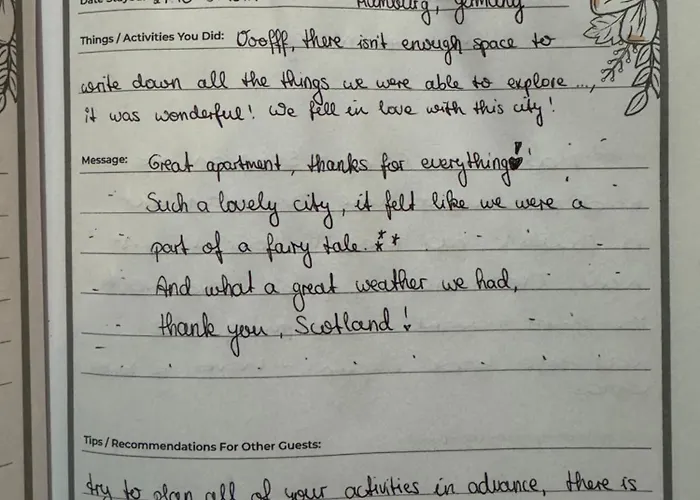 Hamburg, Germany
Things / Activities You Did: Ooofff, there isn't enough space to
write down all the things we were able to explore ...,
it was wonderful! We fell in love with this city!
Message: Great apartment, thanks for everything!
Such a lovely city, it felt like we were a
part of a fairy tale.
And what a great weather we had,
thank you, Scotland!
Tips / Recommendations For Other Guests:
try to plan all of your activities in advance, there is